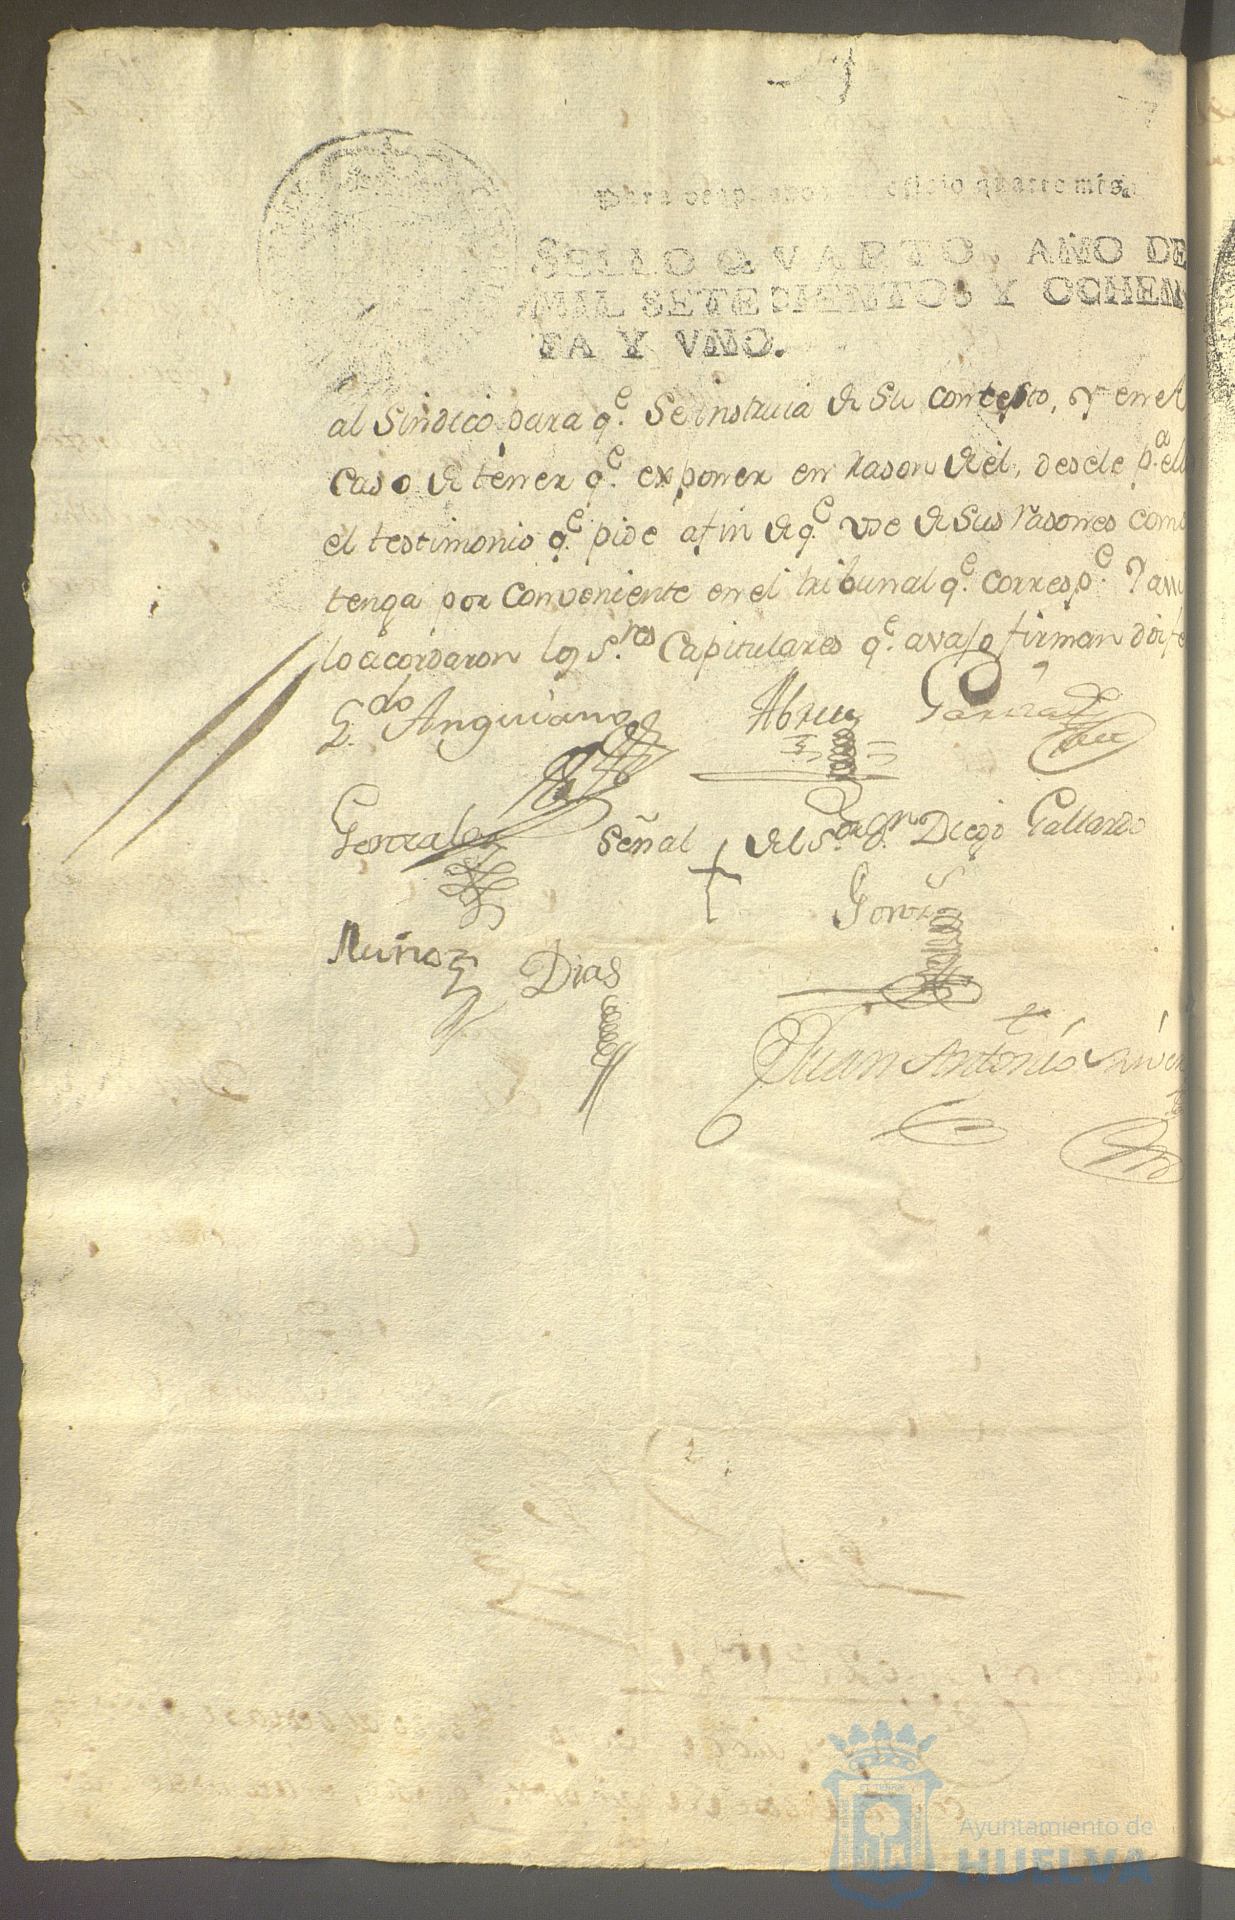 oficio quatro mrs.
SELLO QVARTO, AÑO DE
MIL SETECIENTOS Y OCHEN
TA Y VNO.
al Sindico para q.e Se instruia de Su contesto, y en el
Caso de tener q.e exponer en rason de el, desele p.a ello
el testimonio q.e pide a fin de q.e vse de Sus rasones como
tenga por Conveniente en el tribunal q.e corresp.e Y assi
lo acordaron los S.res Capitulares q.e avajo firman doi fe
L.do Anguiano
Abreu
Garcia
Gonzales
Señal + del S.or Rexr. Dn. Diego Gallardo
Gomz
Muñoz
Dias
Juan Antonio
Ayuntamiento de
HUELVA